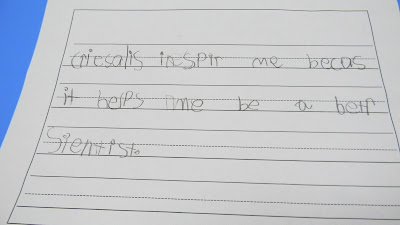 Criesalis inspir me becas
it helps me be a betr
Sientist.